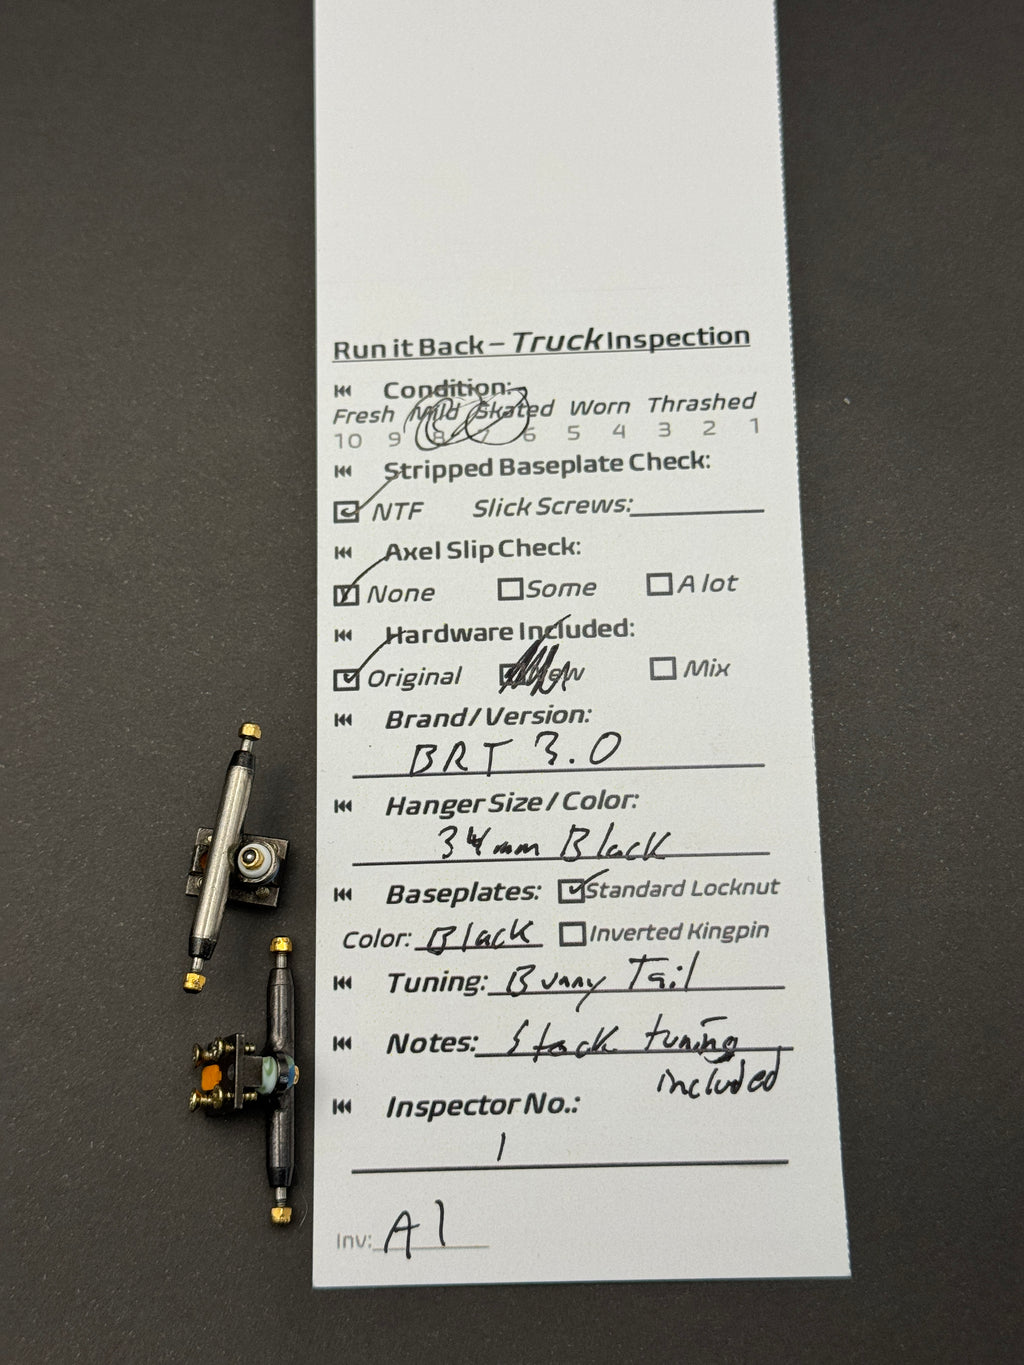 Run it Back – Truck Inspection
Condition:
Fresh Mild Skated Worn Thrashed
10 9 8 7 6 5 4 3 2 1
Stripped Baseplate Check:
NTF Slick Screws:
Axel Slip Check:
None Some A lot
Hardware Included:
Original New Mix
Brand/Version:
BRT 3.0
Hanger Size/Color:
34mm Black
Baseplates: Standard Locknut
Color: Black Inverted Kingpin
Tuning: Bunny Tail
Notes: Stock tuning
included
Inspector No.:
1
Inv: A1